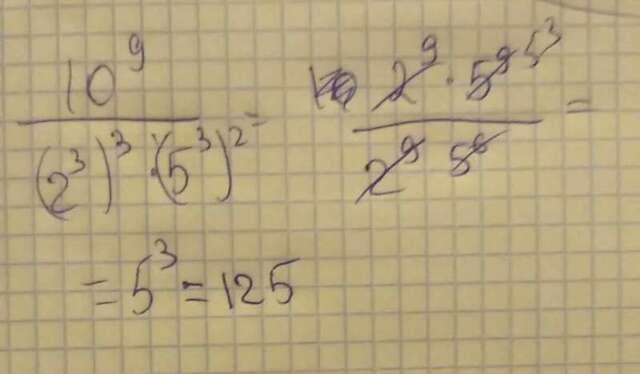 10^9 / (2^3)^3 · (5^3)^2 = 2^9 · 5^9 5^3 / 2^9 5^6 =
= 5^3 = 125